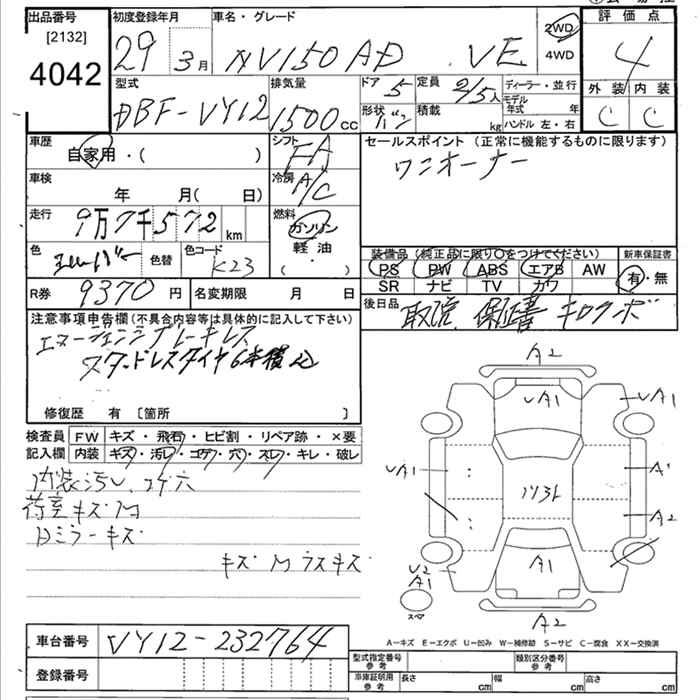 出品番号
[2132]
4042
初度登録年月
29 3月
車名・グレード
NV150 AD VE
2WD
4WD
評価点
4
外装 内装
C C
型式
DBF-VY12
排気量
1500cc
ドア 5
形状 バン
定員 2/5人
積載 kg
ディーラー・並行
モデル年式 年
ハンドル 左・右
車歴
自家用・( )
シフト
FA
セールスポイント(正常に機能するものに限ります)
ワンオーナー
車検
年 月( 日)
冷房
A/C
走行
9万7千572km
燃料
ガソリン
軽油
( ・ )
色
シルバー
色替
色コード
K23
装備品(純正品に限り〇をつけてください)
PS PW ABS エアB AW
SR ナビ TV カワ
新車保証書
有・無
R券 9370円
名変期限 月 日
後日品
取説 保証書 キロクボ
注意事項申告欄(不具合内容等は具体的に記入して下さい)
エマージェンシーブレーキレス
スタッドレスタイヤ6本積込
修復歴 有 [箇所 ]
検査員記入欄
FW キズ・飛石・ヒビ割・リペア跡・×要
内装 キズ・汚レ・コゲ・穴・スレ・キレ・破レ
内装汚レ、コゲ穴
荷室キズM
Dミラーキズ
キズM ラスキズ
A2
UA1
UA1
UA1
A1
A2
ソヨト
A1
U2
A1
スペア
A2
A-キズ E-エクボ U-凹み W-補修跡 S-サビ C-腐食 XX-交換済
車台番号
VY12-232764
登録番号
型式指定番号
参考
類別区分番号
参考
車庫証明用
参考
長さ cm
幅 cm
高さ cm